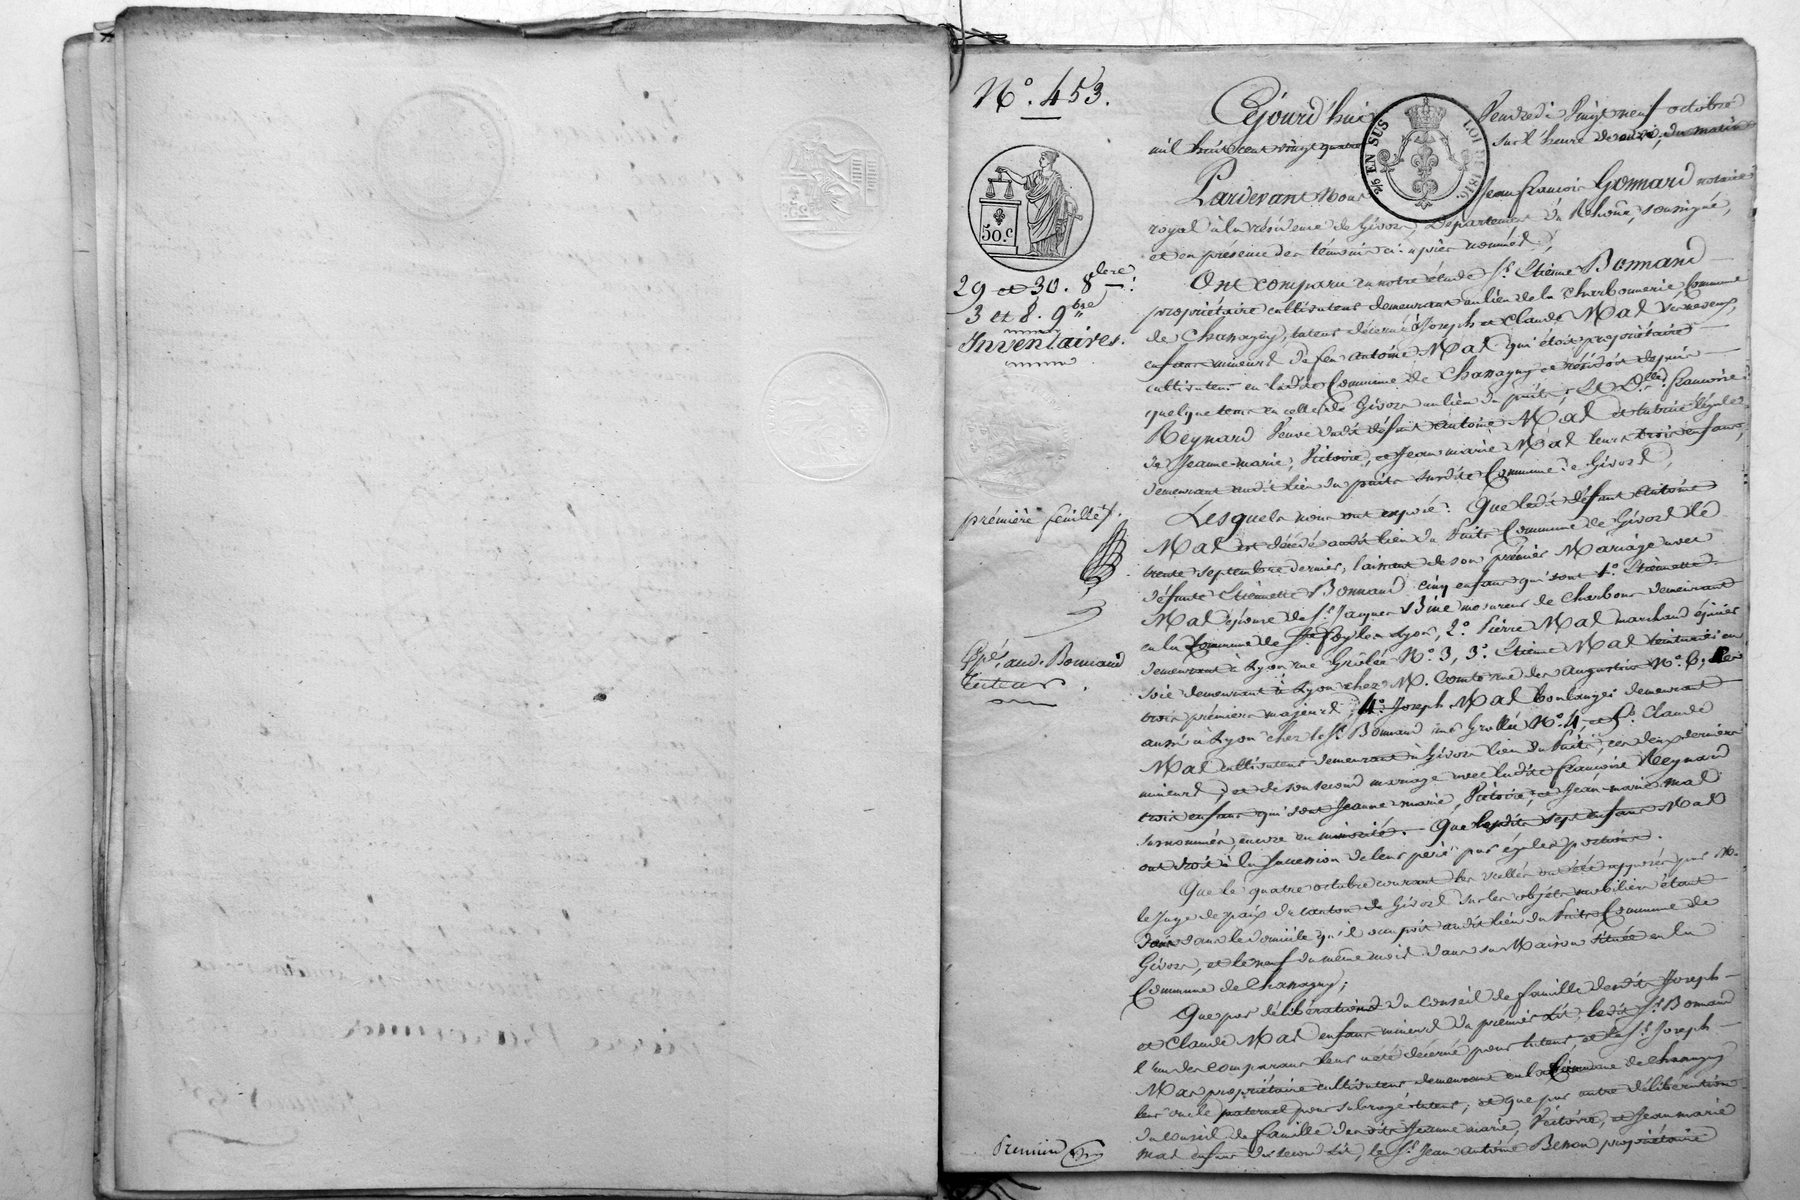 N.° 453.
50.c
29 et 30. 8bre
3 et 8. 9bre
Inventaires.
première feuille
Expé. au d. Bonnand
tuteur.
Premier
2/5 EN SUS
LOI DE 1816.
Cejourd'hui Vendredi Vingt neuf octobre
mil huit cent vingt quatre sur l'heure de onze, du matin
Pardevant Nous Jean françois Gonnard notaire
royal à la résidence de Givors, Département du Rhône, soussigné,
et en présence des témoins ci-après nommés,
Ont comparu en notre étude Sr. Etienne Bonnand
propriétaire cultivateur demeurant au lieu de la Charbonnerie, Commune
de Chassagny, tuteur décerné à Joseph et Claude Mas
enfans mineurs de feu antoine Mas qui étoit propriétaire
cultivateur en ladite Commune de Chassagny et résidoit depuis
quelque tems en celle de Givors au lieu du puits, Et Dlle. françoise
Reynard Veuve dudit défunt antoine Mas et tutrice légale
de Jeanne-marie, Victoire, et Jean marie Mas leurs trois enfans,
demeurant audit lieu du puits susdite Commune de Givors,
Lesquels nous ont exposé: Que ledit défunt Antoine
Mas est décédé audit lieu du Puits Commune de Givors le
trente septembre dernier, laissant de son premier Mariage avec
défunte Etiennette Bonnand cinq enfans qui sont 1.° Etiennette
Mas épouse de Sr. Jacques Bine mesureur de Charbons demeurant
en la Commune de Ste foy les Lyon, 2.° Pierre Mas marchand épicier
demeurant à Lyon rue Grôlée N.° 3, 3.° Etienne Mas teinturier en
soie demeurant à Lyon chez M. Comte rue des augustins N.° 6, les
trois premiers majeurs; 4.° Joseph Mas boulanger demeurant
aussi à Lyon chez le Sr. Bonnand rue Grollée N.° 4, et 5.° Claude
Mas cultivateur demeurant à Givors lieu du Puits, ces deux derniers
mineurs; et de son second mariage avec ladite françoise Reynard
trois enfans qui sont Jeanne marie, Victoire, et Jean-marie mas
surnommés, encore en minorité. Que lesdits sept enfans Mas
ont droit à la succession de leur père par égales portions.
Que le quatre octobre courant les scellés ont été apposés par M.
le Juge de paix du canton de Givors sur les objets mobiliers étant
dans le domicile qu'il occupoit audit lieu du Puits Commune de
Givors, et le neuf du même mois dans sa Maison située en la
Commune de Chassagny;
Que par délibération du conseil de famille desdits Joseph
et Claude Mas enfans mineurs du premier Lit, ledit Sr. Bonnand
l'un des comparans leur a été décerné pour tuteur, et le Sr. Joseph
Mas propriétaire cultivateur demeurant en la Commune de Chassagny
leur oncle paternel pour subrogé tuteur, et que par autre délibération
du conseil de famille desdits Jeanne marie, Victoire, et Jean marie
mas enfans du second Lit, le Sr. Jean antoine Besson propriétaire